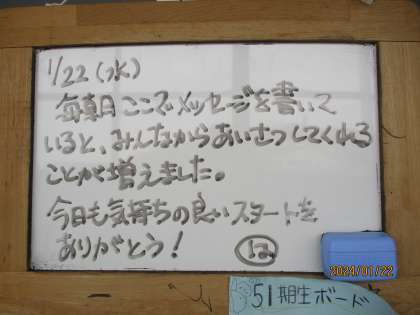 1/22(水)
毎朝日ここでメッセージを書いて
いると、みんなからあいさつしてくれる
ことが増えました。
今日も気持ちの良いスタートを
ありがとう!
2024/01/22
51期生ボード